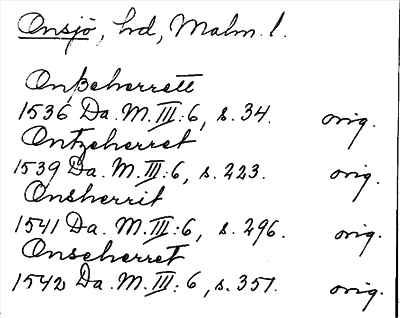 Onsjö, hd, Malm. l.
Onßeherrett
1536 Da. M. III: 6, s. 34. orig.
Ontzeherret
1539 Da. M. III: 6, s. 223. orig.
Onsherrit
1541 Da. M. III: 6, s. 296. orig.
Onseherret
1542 Da. M. III: 6, s. 351. orig.